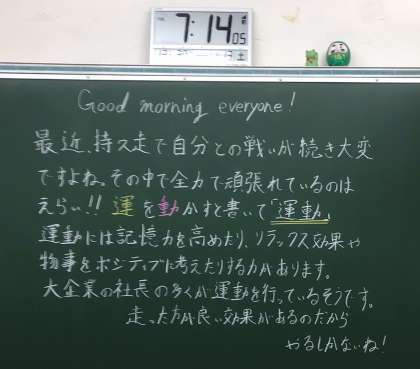 7:14 05
Good morning everyone!
最近、持久走で自分との戦いが続き大変
ですよね。その中で全力で頑張れているのは
えらい!! 運を動かすと書いて「運動」
運動には記憶力を高めたり、リラックス効果や
物事をポジティブに考えたりする力があります。
大企業の社長の多くが運動を行っているそうです。
走った方が良い効果があるのだから
やるしかないね!